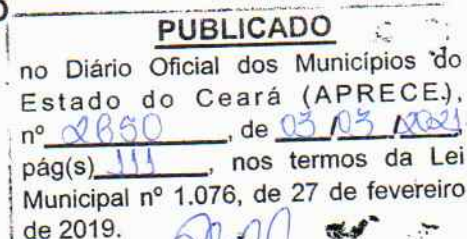 PUBLICADO
no Diário Oficial dos Municípios do
Estado do Ceará (APRECE),
nº 2650, de 03/03/2021
pág(s) 111, nos termos da Lei
Municipal nº 1.076, de 27 de fevereiro
de 2019.